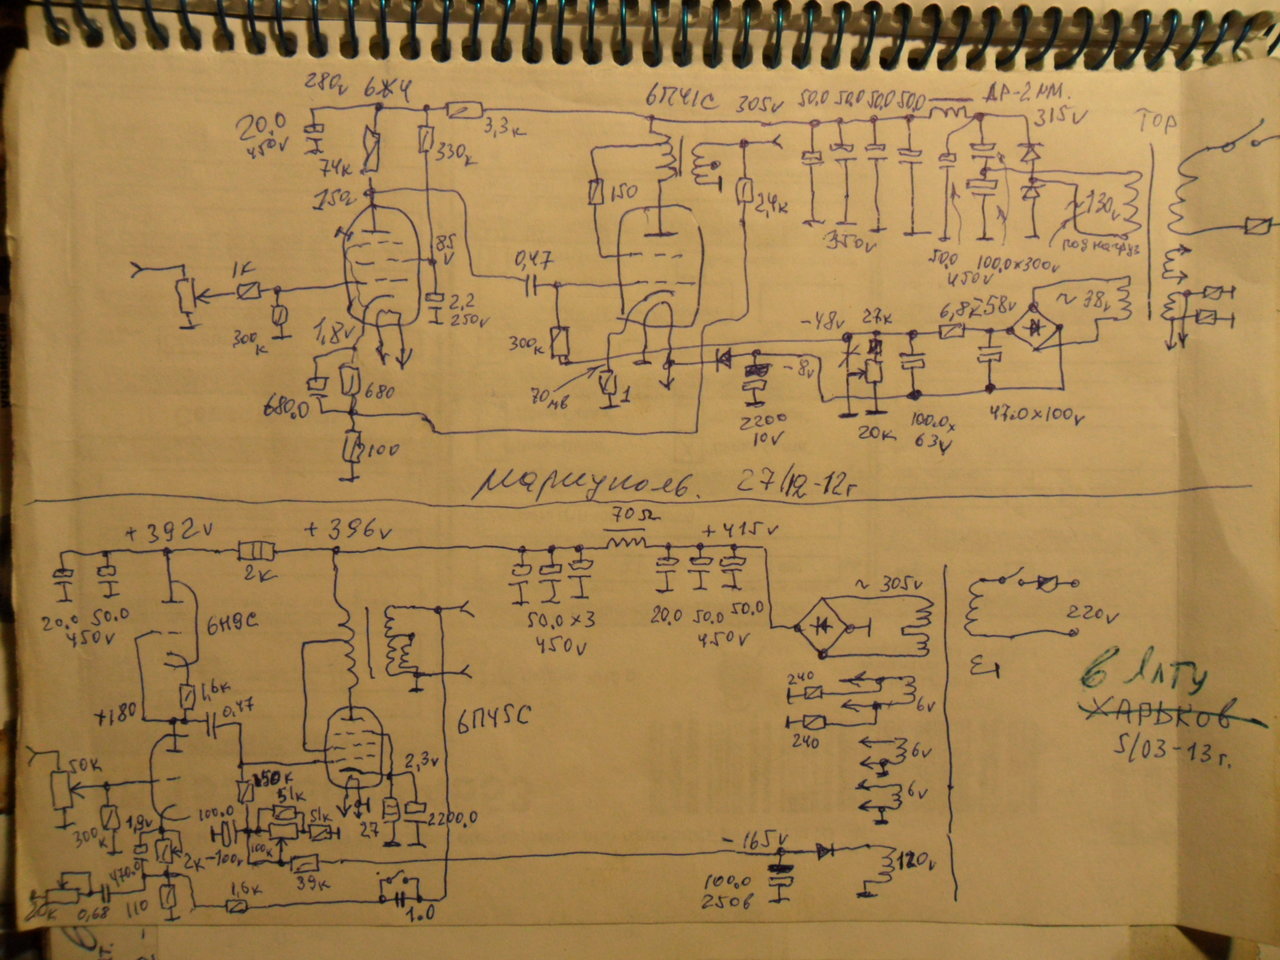 280v 6Ж4
20,0
450v
74к
330к
3,3к
150
6П41С 305v
50,0 50,0 50,0 50,0
ДР-2 мм.
315v
ТОР
150
2,4к
350v
50,0
450v
100,0x300v
~130v
под нагруз
1к
300к
85
v
2,2
250v
0,47
300к
1,8v
680,0
680
100
70мв
1
-48v
27к
6,8к
-58v
~38v
-8v
2200
10v
20к
100,0x
63v
47,0x100v
Мариуполь. 27/12-12г
+392v
2к
+396v
70Ω
+415v
20,0 50,0
450v
6Н9С
50,0x3
450v
20,0 50,0 50,0
450v
~305v
220v
1,6к
0,47
+180
6П45С
240
240
6v
6v
6v
в Ялту
Харьков
5/03-13г.
50к
300к
1,9v
470,0
2к
20к
0,68
110
100,0
-100v
150к
51к
51к
100к
39к
2,3v
27
2200,0
1,6к
1.0
-165v
100,0
250в
120v